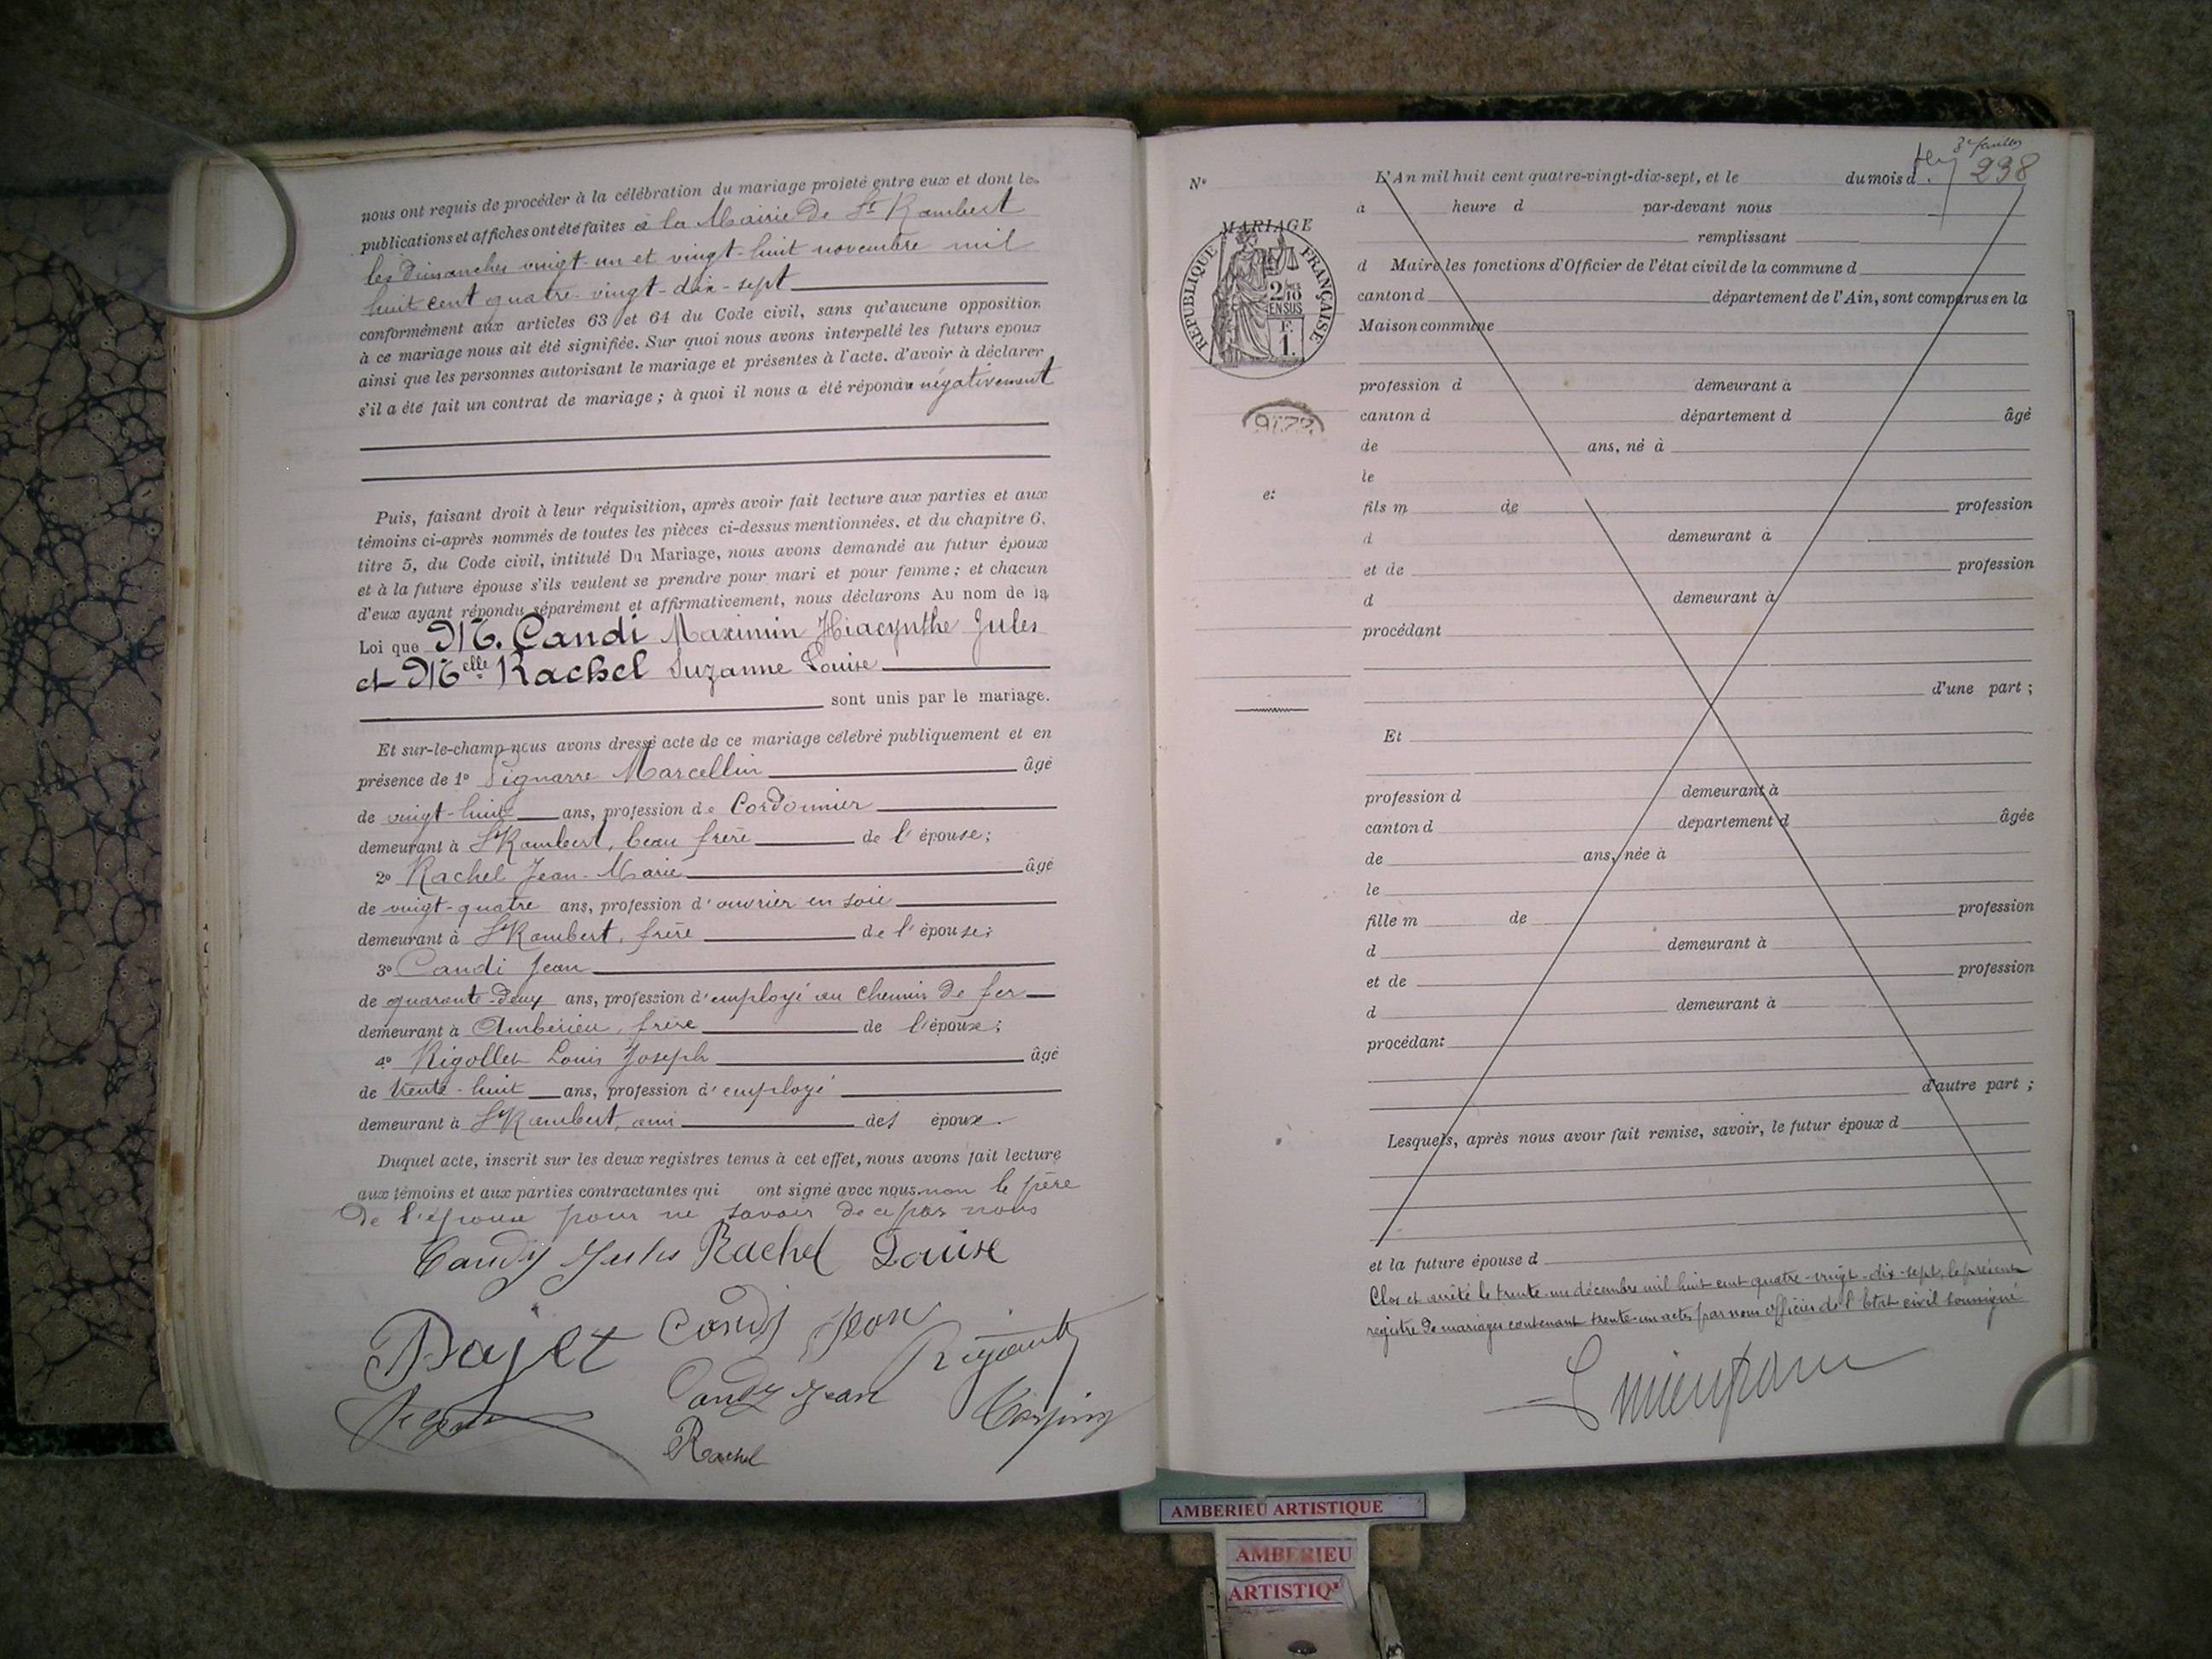 nous ont requis de procéder à la célébration du mariage projeté entre eux et dont les
publications et affiches ont été faites à la Mairie de St Rambert
les dimanches vingt-un et vingt-huit novembre mil
huit cent quatre-vingt-dix-sept
conformément aux articles 63 et 64 du Code civil, sans qu'aucune opposition
à ce mariage nous ait été signifiée. Sur quoi nous avons interpellé les futurs époux
ainsi que les personnes autorisant le mariage et présentes à l'acte. d'avoir à déclarer
s'il a été fait un contrat de mariage ; à quoi il nous a été répondu négativement
Puis, faisant droit à leur réquisition, après avoir fait lecture aux parties et aux
témoins ci-après nommés de toutes les pièces ci-dessus mentionnées, et du chapitre 6,
titre 5, du Code civil, intitulé Du Mariage, nous avons demandé au futur époux
et à la future épouse s'ils veulent se prendre pour mari et pour femme ; et chacun
d'eux ayant répondu séparément et affirmativement, nous déclarons Au nom de la
Loi que M. Candi Maximin Hiacynthe Jules
et Melle Rachel Suzanne Louise
sont unis par le mariage.
Et sur-le-champ nous avons dressé acte de ce mariage célébré publiquement et en
présence de 1° Marcellin âgé
de vingt-huit ans, profession de Cordonnier
demeurant à St Rambert, beau frère de l'épouse;
2° Rachel Jean-Marie âgé
de vingt-quatre ans, profession d'ouvrier en soie
demeurant à St Rambert, frère de l'épouse;
3° Candi Jean
de quarante-deux ans, profession d'employé au chemin de fer
demeurant à Ambérieu, frère de l'époux;
4° Rigollet Louis Joseph âgé
de trente-huit ans, profession d'employé
demeurant à St Rambert, ami des époux.
Duquel acte, inscrit sur les deux registres tenus à cet effet, nous avons fait lecture
aux témoins et aux parties contractantes qui ont signé avec nous non le père
de l'époux pour ne savoir de ce par nous
Candy Jules Rachel Louise
Candy Jean
Candy Jean
Rachel
3e feuillet
238
N°
L'An mil huit cent quatre-vingt-dix-sept, et le du mois d
à heure d par-devant nous
remplissant
MARIAGE
RÉPUBLIQUE FRANÇAISE
2/10 EN SUS
F. 1.
d Maire les fonctions d'Officier de l'état civil de la commune d
canton d département de l'Ain, sont comparus en la
Maison commune
profession d demeurant à
canton d département d âgé
de ans, né à
le
et
fils m de profession
d demeurant à
et de profession
d demeurant à
procédant
d'une part ;
Et
profession d demeurant à
canton d département d âgée
de ans, née à
le
fille m de profession
d demeurant à
et de profession
d demeurant à
procédant
d'autre part ;
Lesquels, après nous avoir fait remise, savoir, le futur époux d
et la future épouse d
Clos et arrêté le trente-un décembre mil huit cent quatre-vingt-dix-sept, le présent
registre de mariages contenant trente-un actes, par nous officier de l'état civil soussigné
AMBERIEU ARTISTIQUE
AMBERIEU
ARTISTIQ